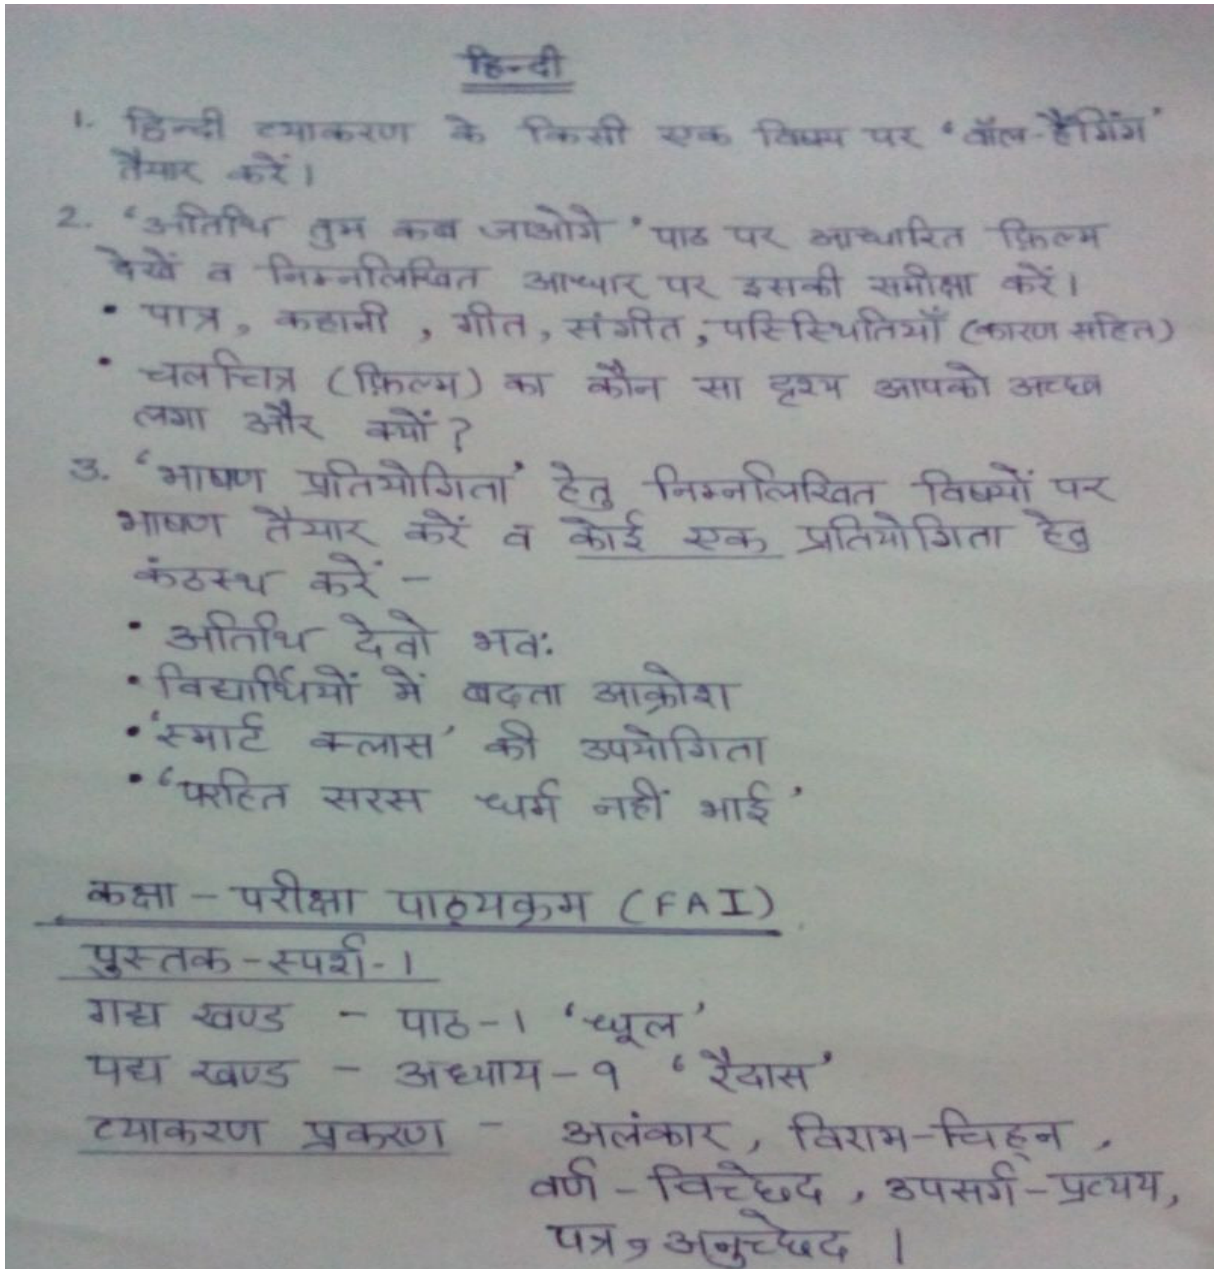 हिन्दी
1. हिन्दी व्याकरण के किसी एक विषय पर 'वॉल-हैंगिंग'
तैयार करें।
2. 'अतिथि तुम कब जाओगे' पाठ पर आधारित फ़िल्म
देखें व निम्नलिखित आधार पर इसकी समीक्षा करें।
• पात्र, कहानी, गीत, संगीत, परिस्थितियाँ (कारण सहित)
• चलचित्र (फ़िल्म) का कौन सा दृश्य आपको अच्छा
लगा और क्यों?
3. 'भाषण प्रतियोगिता' हेतु निम्नलिखित विषयों पर
भाषण तैयार करें व कोई एक प्रतियोगिता हेतु
कंठस्थ करें -
• अतिथि देवो भव:
• विद्यार्थियों में बढ़ता आक्रोश
• 'स्मार्ट क्लास' की उपयोगिता
• 'परहित सरस धर्म नहीं भाई'
कक्षा - परीक्षा पाठ्यक्रम (FAI)
पुस्तक - स्पर्श - 1
गद्य खण्ड - पाठ-1 'धूल'
पद्य खण्ड - अध्याय - १ 'रैदास'
व्याकरण प्रकरण - अलंकार, विराम-चिह्न,
वर्ण - विच्छेद, उपसर्ग - प्रत्यय,
पत्र, अनुच्छेद।